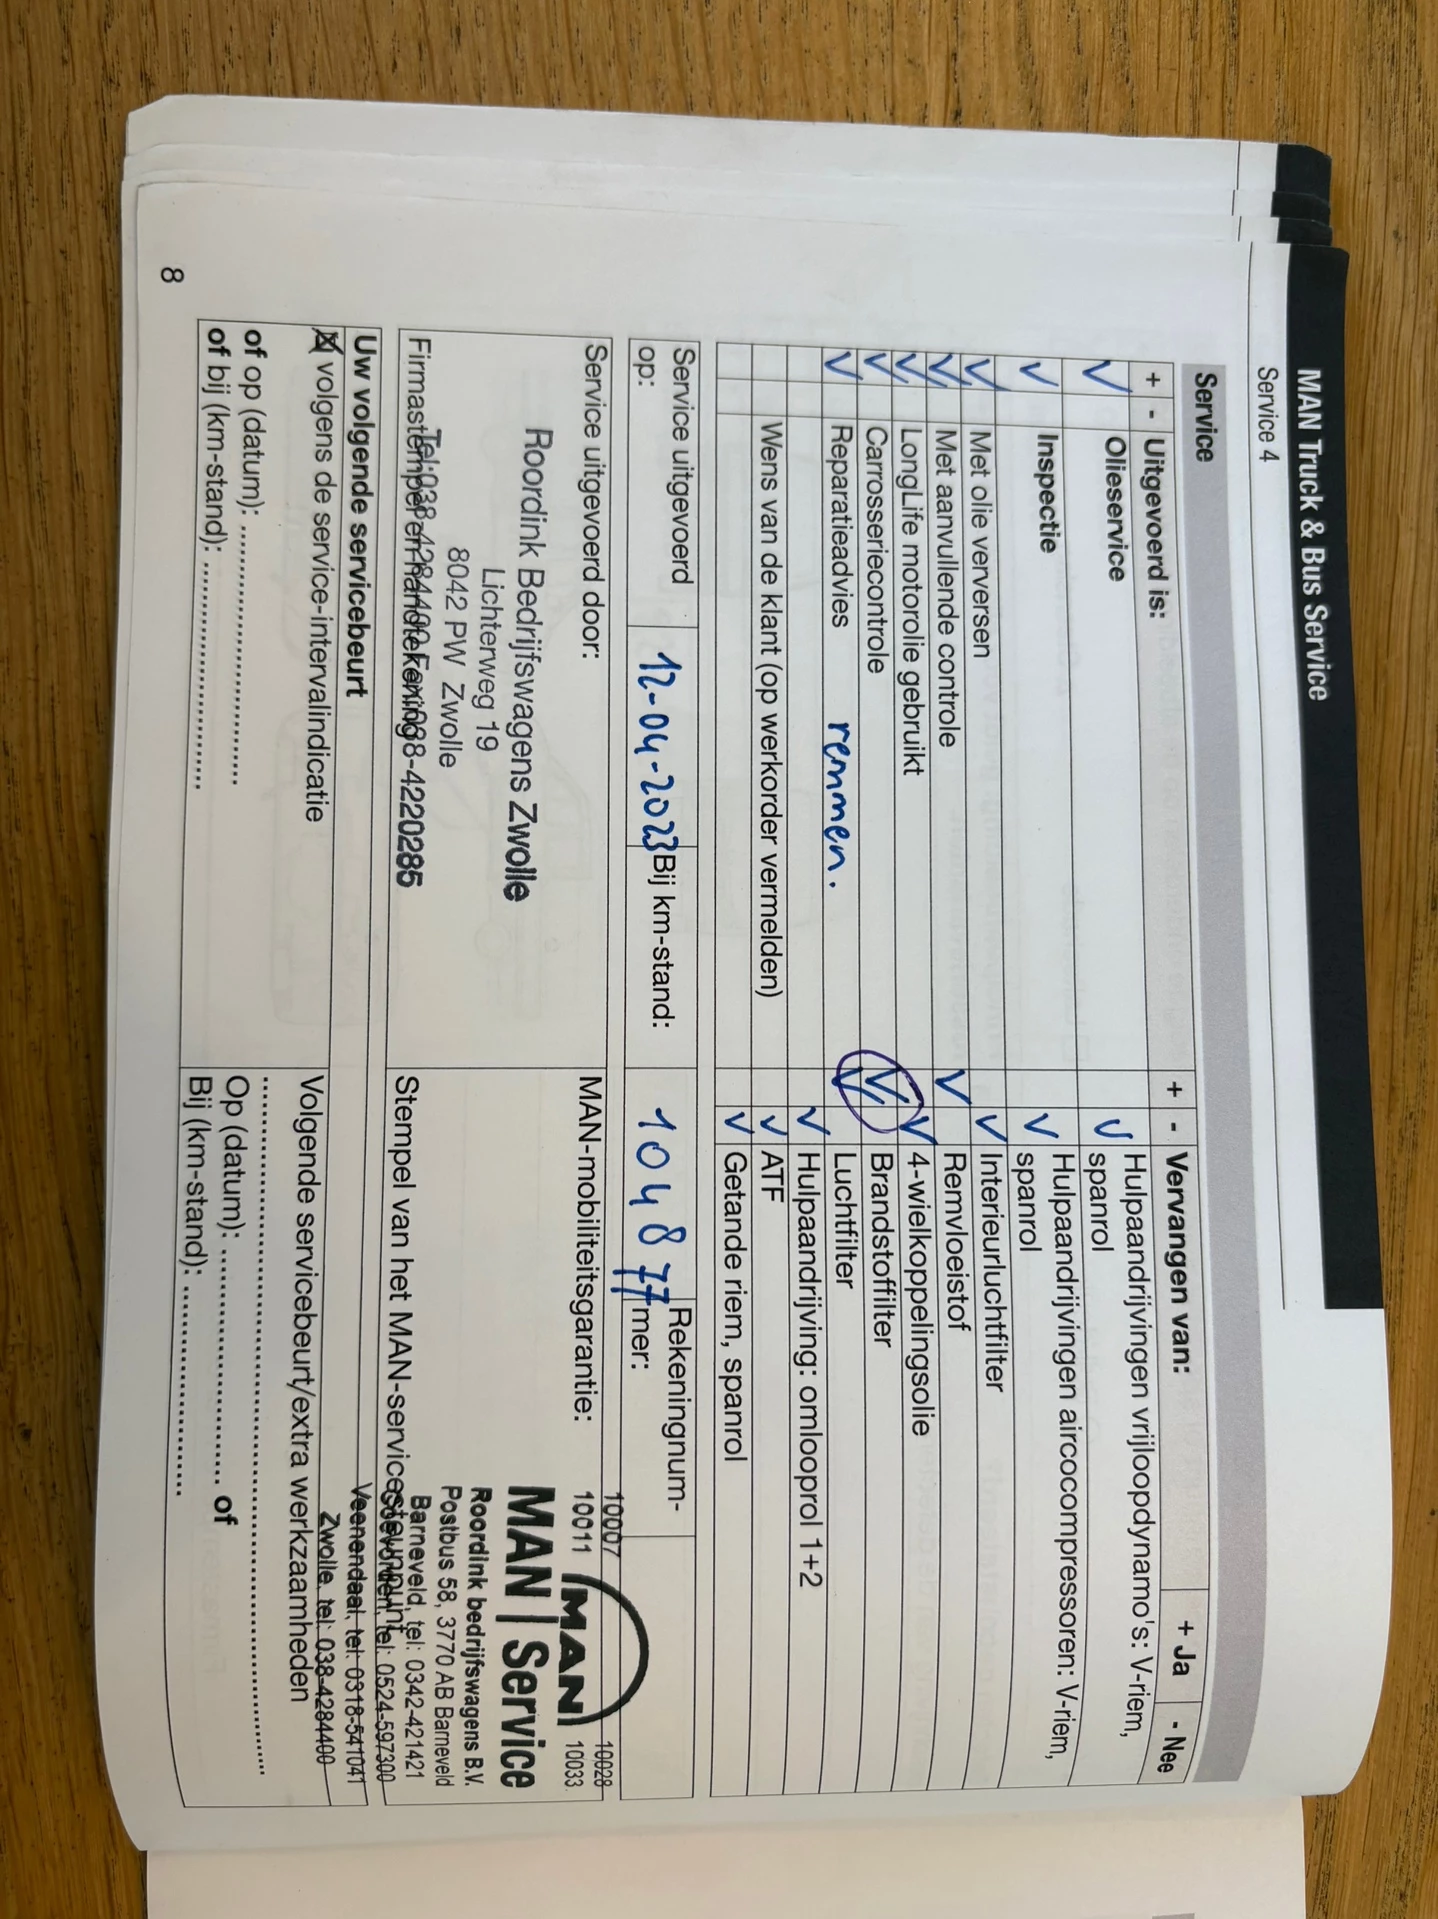 MAN Truck & Bus Service
Service 4
Service
+ - Uitgevoerd is: + - Vervangen van: + Ja - Nee
✓ Olieservice ✓ Hulpaandrijvingen vrijloopdynamo's: V-riem,
spanrol
✓ Inspectie ✓ Hulpaandrijvingen aircocompressoren: V-riem,
spanrol
✓ Met olie verversen ✓ Interieurluchtfilter
✓ Met aanvullende controle ✓ Remvloeistof
✓ LongLife motorolie gebruikt ✓ 4-wielkoppelingsolie
✓ Carrosseriecontrole ✓ Brandstoffilter
✓ Reparatieadvies remmen. ✓ Luchtfilter
✓ Hulpaandrijving: omlooprol 1+2
Wens van de klant (op werkorder vermelden) ✓ ATF
✓ Getande riem, spanrol
Service uitgevoerd
op:
12-04-2023
Bij km-stand:
104877
Rekeningnum-
mer:
Service uitgevoerd door:
Roordink Bedrijfswagens Zwolle
Lichterweg 19
8042 PW Zwolle
Tel:038-4284400 Fax:038-4220285
Firmastempel en handtekening
MAN-mobiliteitsgarantie:
10007 10028
10011 MAN 10033
MAN | Service
Roordink bedrijfswagens B.V.
Postbus 58, 3770 AB Barneveld
Barneveld, tel: 0342-421421
Coevorden, tel: 0524-597300
Veenendaal, tel: 0318-541041
Zwolle, tel: 038-4284400
Stempel van het MAN-servicesteunpunt
Uw volgende servicebeurt
☒ volgens de service-intervalindicatie
of op (datum): ..............................
of bij (km-stand): ..............................
Volgende servicebeurt/extra werkzaamheden
............................................................
Op (datum): .............................. of
Bij (km-stand): ..............................
8